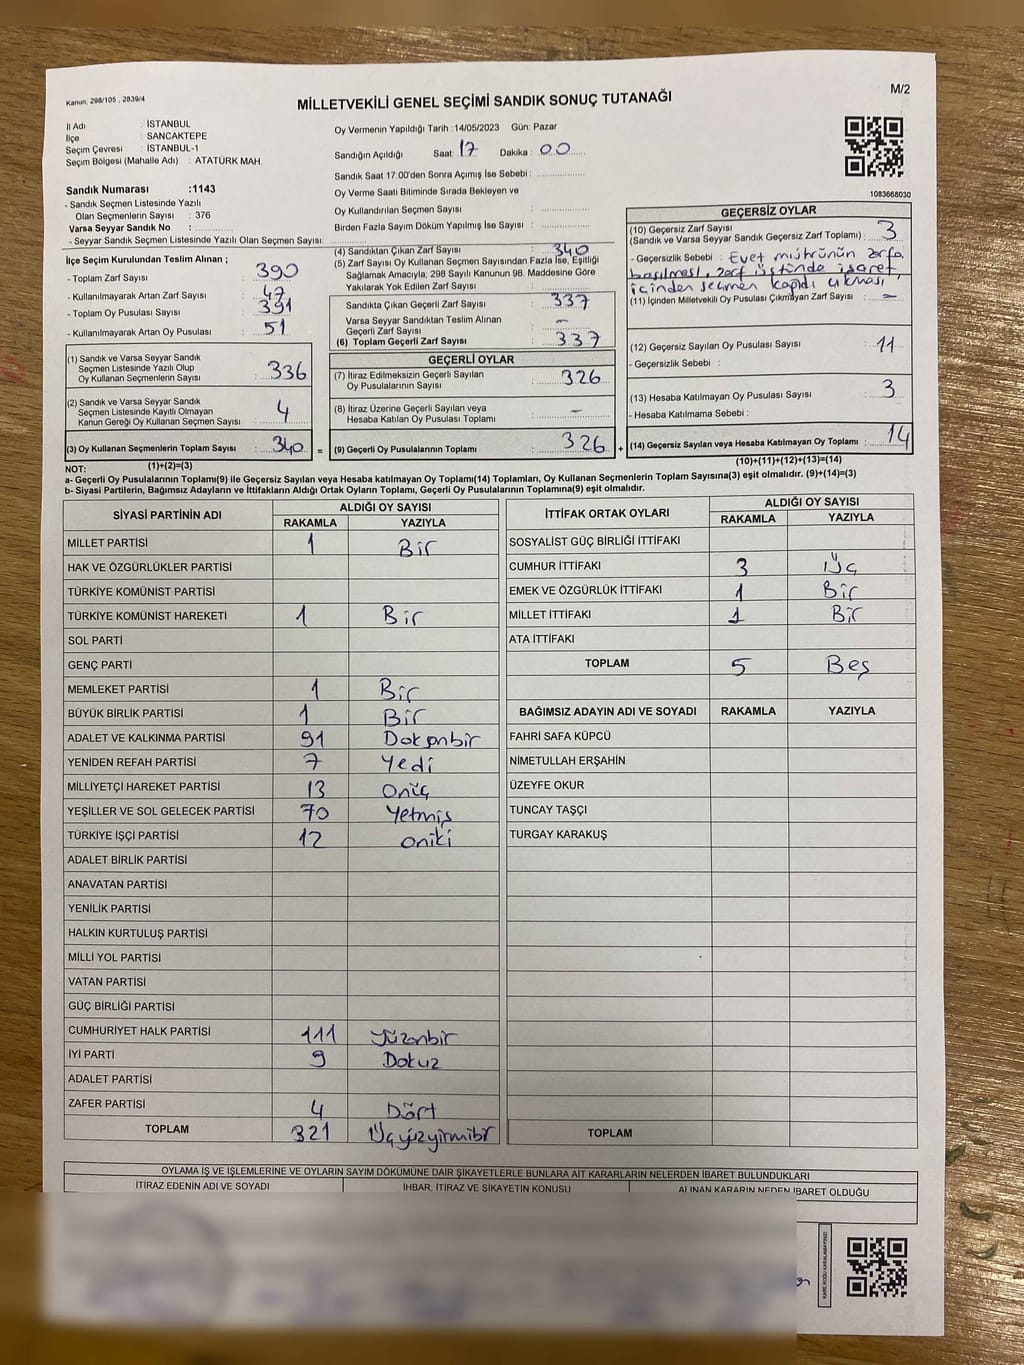 Kanun, 298/105 , 2839/4
MİLLETVEKİLİ GENEL SEÇİMİ SANDIK SONUÇ TUTANAĞI
M/2
İl Adı : İSTANBUL
İlçe : SANCAKTEPE
Seçim Çevresi : İSTANBUL-1
Seçim Bölgesi (Mahalle Adı) : ATATÜRK MAH.
Sandık Numarası :1143
- Sandık Seçmen Listesinde Yazılı
Olan Seçmenlerin Sayısı : 376
Varsa Seyyar Sandık No :
- Seyyar Sandık Seçmen Listesinde Yazılı Olan Seçmen Sayısı:
Oy Vermenin Yapıldığı Tarih :14/05/2023 Gün: Pazar
Sandığın Açıldığı Saat: 17 Dakika : 00
Sandık Saat 17:00'den Sonra Açımış İse Sebebi :
Oy Verme Saati Bitiminde Sırada Bekleyen ve
Oy Kullandırılan Seçmen Sayısı :
Birden Fazla Sayım Döküm Yapılmış İse Sayısı :
1083668030
İlçe Seçim Kurulundan Teslim Alınan ;
- Toplam Zarf Sayısı : 390
- Kullanılmayarak Artan Zarf Sayısı : 47
- Toplam Oy Pusulası Sayısı : 391
- Kullanılmayarak Artan Oy Pusulası : 51
(1) Sandık ve Varsa Seyyar Sandık
Seçmen Listesinde Yazılı Olup
Oy Kullanan Seçmenlerin Sayısı : 336
(2) Sandık ve Varsa Seyyar Sandık
Seçmen Listesinde Kayıtlı Olmayan
Kanun Gereği Oy Kullanan Seçmen Sayısı : 4
(3) Oy Kullanan Seçmenlerin Toplam Sayısı : 340 =
(1)+(2)=(3)
(4) Sandıktan Çıkan Zarf Sayısı : 340
(5) Zarf Sayısı Oy Kullanan Seçmen Sayısından Fazla İse, Eşitliği
Sağlamak Amacıyla; 298 Sayılı Kanunun 98. Maddesine Göre
Yakılarak Yok Edilen Zarf Sayısı :
Sandıkta Çıkan Geçerli Zarf Sayısı : 337
Varsa Seyyar Sandıktan Teslim Alınan
Geçerli Zarf Sayısı : -
(6) Toplam Geçerli Zarf Sayısı : 337
GEÇERLİ OYLAR
(7) İtiraz Edilmeksizin Geçerli Sayılan
Oy Pusulalarının Sayısı : 326
(8) İtiraz Üzerine Geçerli Sayılan veya
Hesaba Katılan Oy Pusulası Toplamı : -
(9) Geçerli Oy Pusulalarının Toplamı : 326 +
GEÇERSİZ OYLAR
(10) Geçersiz Zarf Sayısı
(Sandık ve Varsa Seyyar Sandık Geçersiz Zarf Toplamı) : 3
- Geçersizlik Sebebi : Evet mührünün zarfa
basılması, zarf üstünde işaret,
içinden seçmen kağıdı çıkması
(11) İçinden Milletvekili Oy Pusulası Çıkmayan Zarf Sayısı : -
(12) Geçersiz Sayılan Oy Pusulası Sayısı : 11
- Geçersizlik Sebebi :
(13) Hesaba Katılmayan Oy Pusulası Sayısı : 3
- Hesaba Katılmama Sebebi :
(14) Geçersiz Sayılan veya Hesaba Katılmayan Oy Toplamı : 14
(10)+(11)+(12)+(13)=(14)
NOT:
a- Geçerli Oy Pusulalarının Toplamı(9) ile Geçersiz Sayılan veya Hesaba katılmayan Oy Toplamı(14) Toplamları, Oy Kullanan Seçmenlerin Toplam Sayısına(3) eşit olmalıdır. (9)+(14)=(3)
b- Siyasi Partilerin, Bağımsız Adayların ve İttifakların Aldığı Ortak Oyların Toplamı, Geçerli Oy Pusulalarının Toplamına(9) eşit olmalıdır.
SİYASİ PARTİNİN ADI
ALDIĞI OY SAYISI
RAKAMLA YAZIYLA
MİLLET PARTİSİ 1 Bir
HAK VE ÖZGÜRLÜKLER PARTİSİ
TÜRKİYE KOMÜNİST PARTİSİ
TÜRKİYE KOMÜNİST HAREKETİ 1 Bir
SOL PARTİ
GENÇ PARTİ
MEMLEKET PARTİSİ 1 Bir
BÜYÜK BİRLİK PARTİSİ 1 Bir
ADALET VE KALKINMA PARTİSİ 91 Doksanbir
YENİDEN REFAH PARTİSİ 7 Yedi
MİLLİYETÇİ HAREKET PARTİSİ 13 Onüç
YEŞİLLER VE SOL GELECEK PARTİSİ 70 Yetmiş
TÜRKİYE İŞÇİ PARTİSİ 12 oniki
ADALET BİRLİK PARTİSİ
ANAVATAN PARTİSİ
YENİLİK PARTİSİ
HALKIN KURTULUŞ PARTİSİ
MİLLİ YOL PARTİSİ
VATAN PARTİSİ
GÜÇ BİRLİĞİ PARTİSİ
CUMHURİYET HALK PARTİSİ 111 Yüzonbir
İYİ PARTİ 9 Dokuz
ADALET PARTİSİ
ZAFER PARTİSİ 4 Dört
TOPLAM 321 Üçyüzyirmibir
İTTİFAK ORTAK OYLARI
ALDIĞI OY SAYISI
RAKAMLA YAZIYLA
SOSYALİST GÜÇ BİRLİĞİ İTTİFAKI
CUMHUR İTTİFAKI 3 Üç
EMEK VE ÖZGÜRLÜK İTTİFAKI 1 Bir
MİLLET İTTİFAKI 1 Bir
ATA İTTİFAKI
TOPLAM 5 Beş
BAĞIMSIZ ADAYIN ADI VE SOYADI RAKAMLA YAZIYLA
FAHRİ SAFA KÜPCÜ
NİMETULLAH ERŞAHİN
ÜZEYFE OKUR
TUNCAY TAŞÇI
TURGAY KARAKUŞ
TOPLAM
OYLAMA İŞ VE İŞLEMLERİNE VE OYLARIN SAYIM DÖKÜMÜNE DAİR ŞİKAYETLERLE BUNLARA AİT KARARLARIN NELERDEN İBARET BULUNDUKLARI
İTİRAZ EDENİN ADI VE SOYADI İHBAR, İTİRAZ VE ŞİKAYETİN KONUSU ALINAN KARARIN NEDEN İBARET OLDUĞU